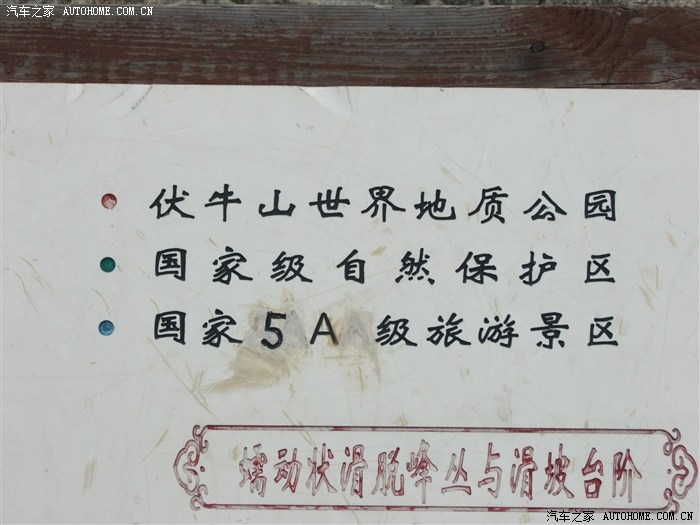 汽车之家 AUTOHOME.COM.CN
伏牛山世界地质公园
国家级自然保护区
国家5A级旅游景区
蠕动状滑脱峰丛与滑坡台阶
汽车之家 AUTOHOME.COM.CN